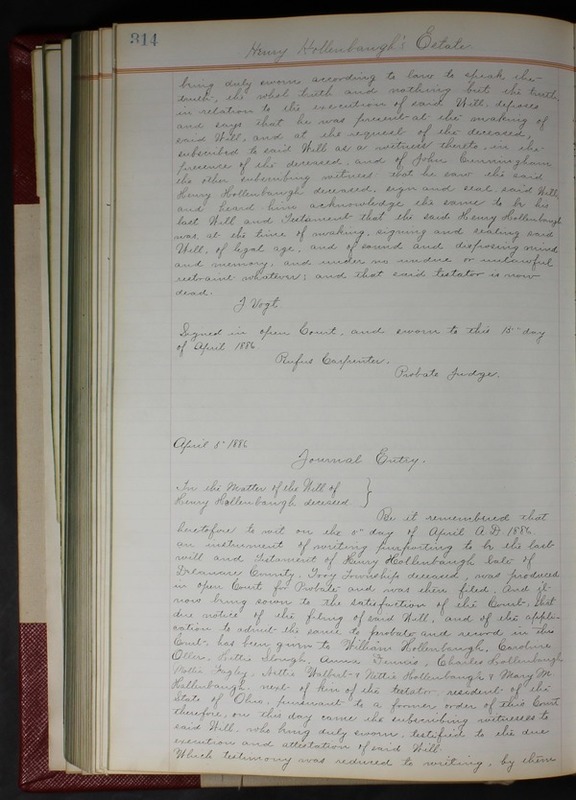 314
Henry Hollenbaugh's Estate
being duly sworn according to law to speak the
truth, the whol truth and nothing but the truth,
in relation to the execution of said Will, deposes
and says that he was present at the making of
said Will, and at the request of the deceased,
subscribed to said Will as a witness thereto, in the
presence of the deceased, and of John Cunningham
the other subscribing witness that he saw the said
Henry Hollenbaugh deceased, sign and seal said Will
and heard him acknowledge the same to be his
last Will and Testament that the said Henry Hollenbaugh
was at the time of making, signing and sealing said
Will, of legal age, and of sound and disposing mind
and memory, and under no undue or unlawful
restraint whatever; and that said testator is now
dead.
J Vogt.
Signed in open Court, and sworn to this 15" day
of April 1886
Rufus Carpenter.
Probate Judge.
April 5" 1886
Journal Entry.
In the Matter of the Will of }
Henry Hollenbaugh deceased
Be it remembered that
heretofore to wit on the 5" day of April A.D 1886.
an instrument of writing purporting to be the last
will and testament of Henry Hollenbaugh late of
Delaware County, Troy Township deceased, was produced
in open Court for Probate and was then filed. And it
now being sown to the satisfaction of the Court, that
due notice of the filing of said Will, and of the appli-
cation to admit the same to probate and record in this
Court, has been given to William Hollenbaugh, Caroline
Oller, Slough, Anna Charles Hollenbaugh
Walbert & Nettie Hollenbaugh & Mary M
Hollenbaugh, next of kin of the testator, resident of the
State of Ohio, pursuant to a former order of this Court
therefore, on this day came the subscribing witnesses to
said Will, who being duly sworn, testified to the due
execution and attestation of said Will:
Which testimony was reduced to writing, by them